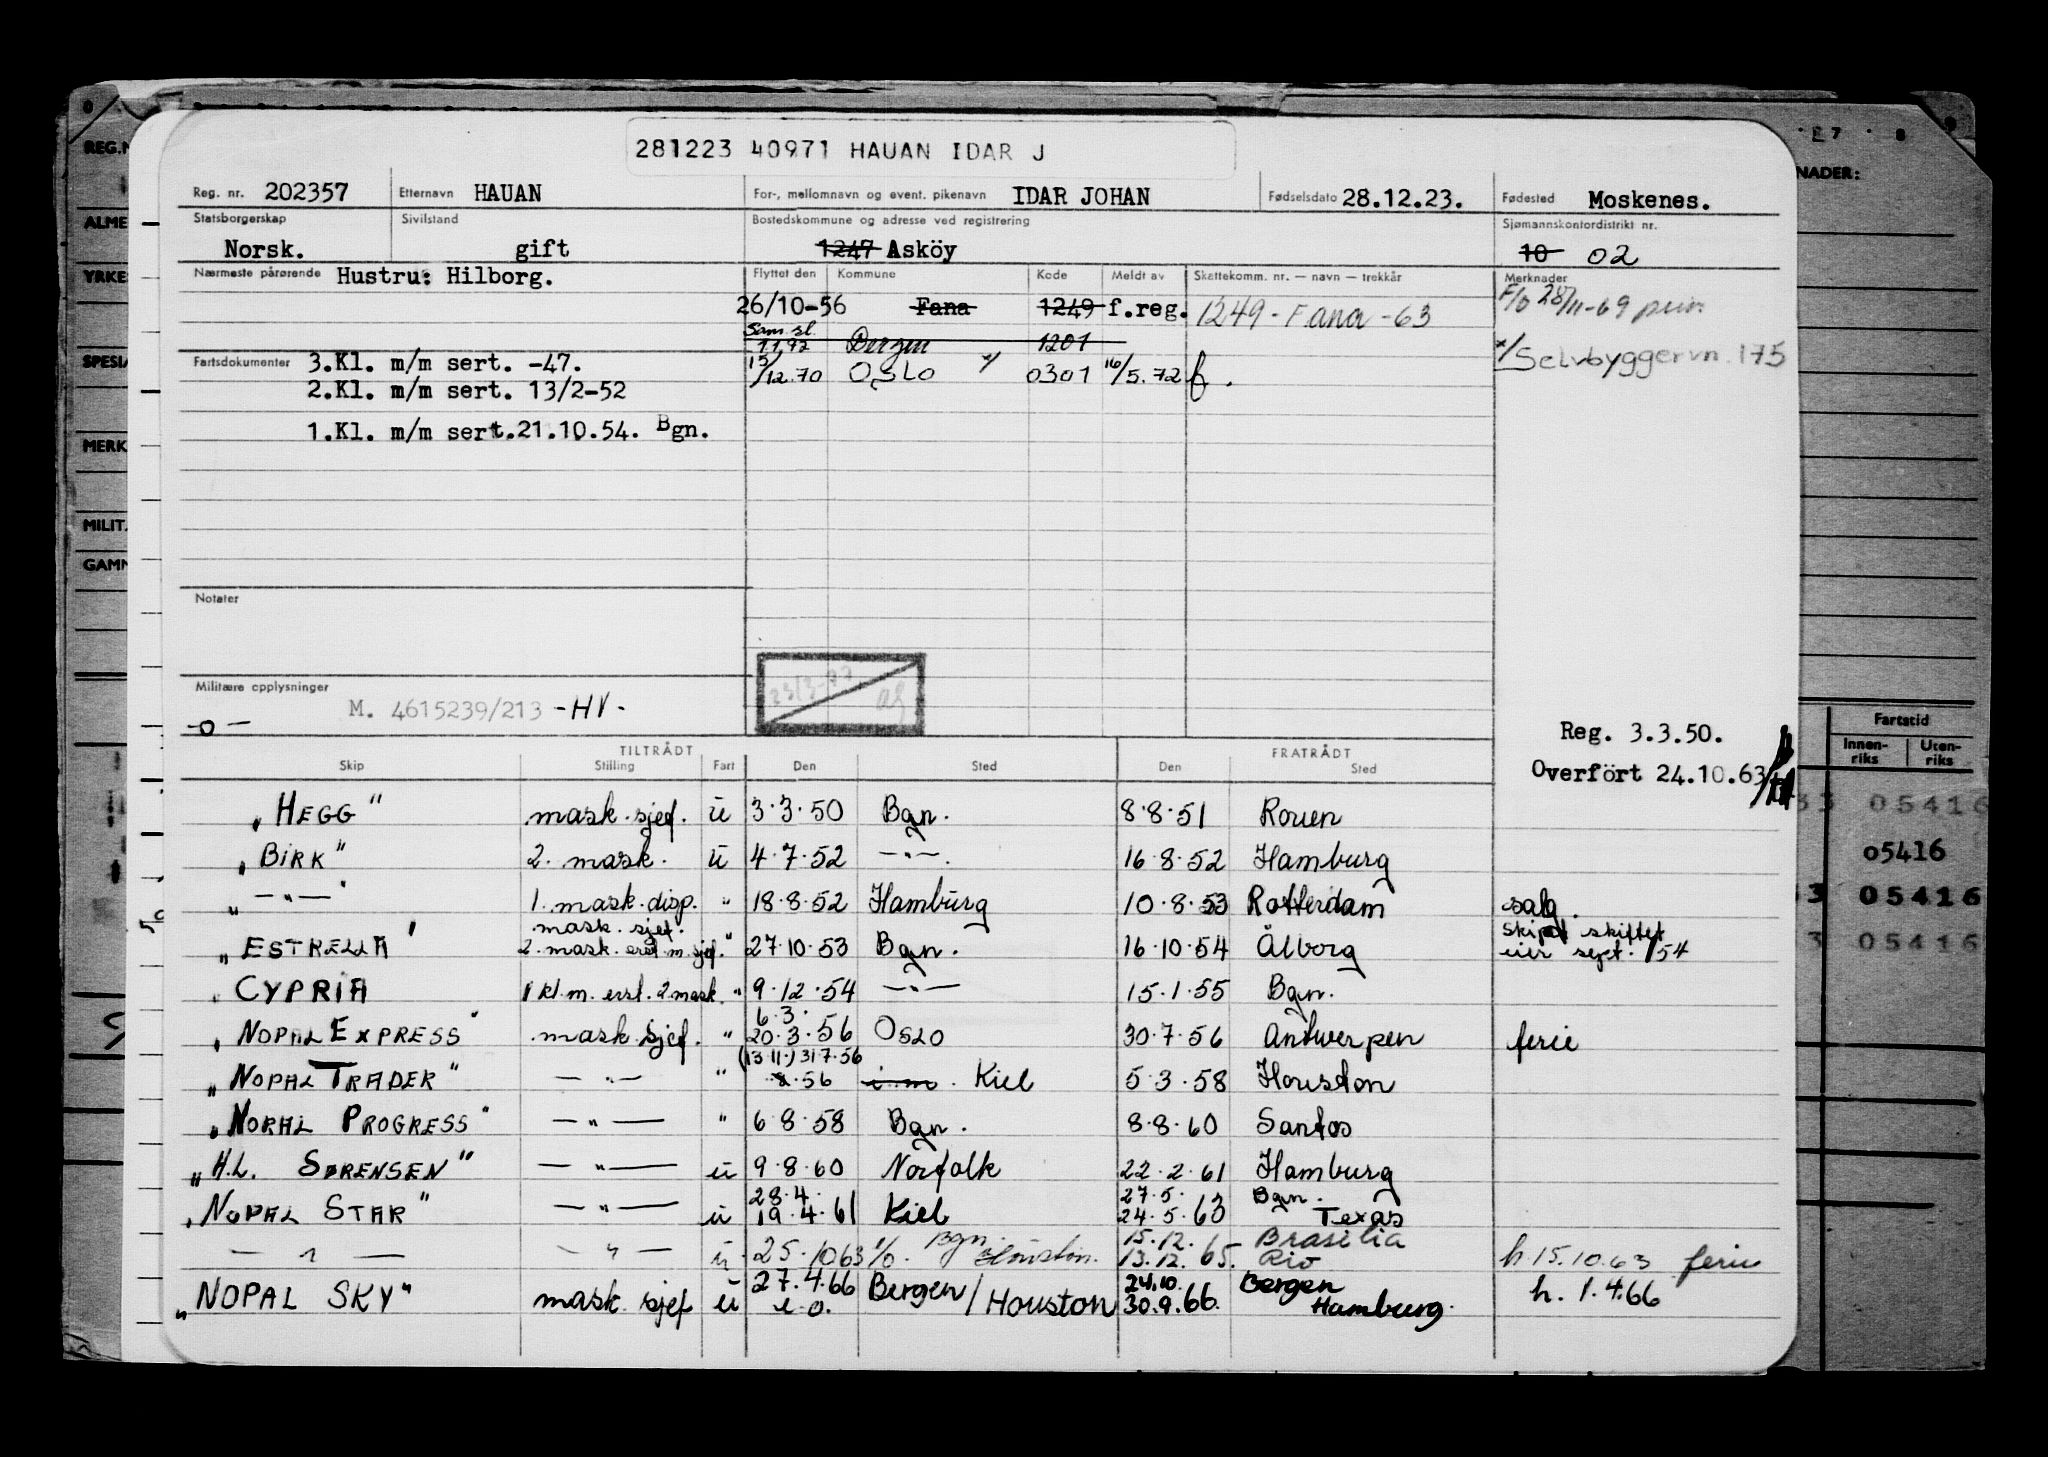 281223 40971 HAUAN IDAR J
Reg. nr. 202357 Etternavn HAUAN For-, mellomnavn og event. pikenavn IDAR JOHAN Fødselsdato 28.12.23. Fødested Moskenes.
Statsborgerskap Norsk. Sivilstand gift Bostedskommune og adresse ved registrering 1247 Asköy Sjømannskontordistrikt nr. 10 02
Nærmeste pårørende Hustru: Hilborg. Flyttet den Kommune Kode Meldt av Skattekomm. nr. — navn — trekkår Merknader
26/10-56 Fana 1249 f.reg. 1249 - Fana - 63 F/o 28/11-69
Sam.sl.
11,92 Bergen 1201
Fartsdokumenter 3.Kl. m/m sert. -47. 15/12.70 OSLO */ 0301 16/5.72 f. */ Selvbyggervn. 175
2.Kl. m/m sert. 13/2-52
1.Kl. m/m sert.21.10.54. Bgn.
Notater
Militære opplysninger M. 4615239/213 -HV-
-o-
Reg. 3.3.50.
Overfört 24.10.63/
TILTRÅDT FRATRÅDT
Skip Stilling Fart Den Sted Den Sted
"HEGG" mask.sjef. u 3.3.50 Bgn. 8.8.51 Rouen
"BIRK" 2. mask. u 4.7.52 -"-. 16.8.52 Hamburg
"-"-" 1. mask.disp. " 18.8.52 Hamburg 10.8.53 Rotterdam salg.
mask. sjef. skipet skiftet
"ESTRELLA" 2. mask. erst m. sjef. " 27.10.53 Bgn. 16.10.54 Ålborg eier sept. /54
"CYPRIA 1 kl.m. erst. 2 mask. " 9.12.54 -"- 15.1.55 Bgn.
6.3.
"NOPAL EXPRESS" mask.sjef. " 20.3.56 OSLO 30.7.56 Antwerpen ferie
(13.11.) 31.7.56
"NOPAL TRADER" -"- " 8.56 i.m. Kiel 5.3.58 Houston
"NOPAL PROGRESS" -"- " 6.8.58 Bgn. 8.8.60 Santos
"H.L. SØRENSEN" -"- u 9.8.60 Norfolk 22.2.61 Hamburg
28.4. 27.5. Bgn.
"NOPAL STAR" -"- u 19.4.61 Kiel 24.5.63 Texas
Bgn. 15.12. Brasilia
-"- -"- u 25.10.63 i/o. Houston. 13.12.65. Rio h 15.10.63 ferie
27.4.66 24.10. Bergen
"NOPAL SKY" mask. sjef u i.o. Bergen/Houston 30.9.66. Hamburg. h. 1.4.66
REG.N
ALME
YRKE
SPESIA
MERK
MILIT.
GAMM
NADER:
Fartstid
Innen-riks Uten-riks
05416
05416
05416
05416